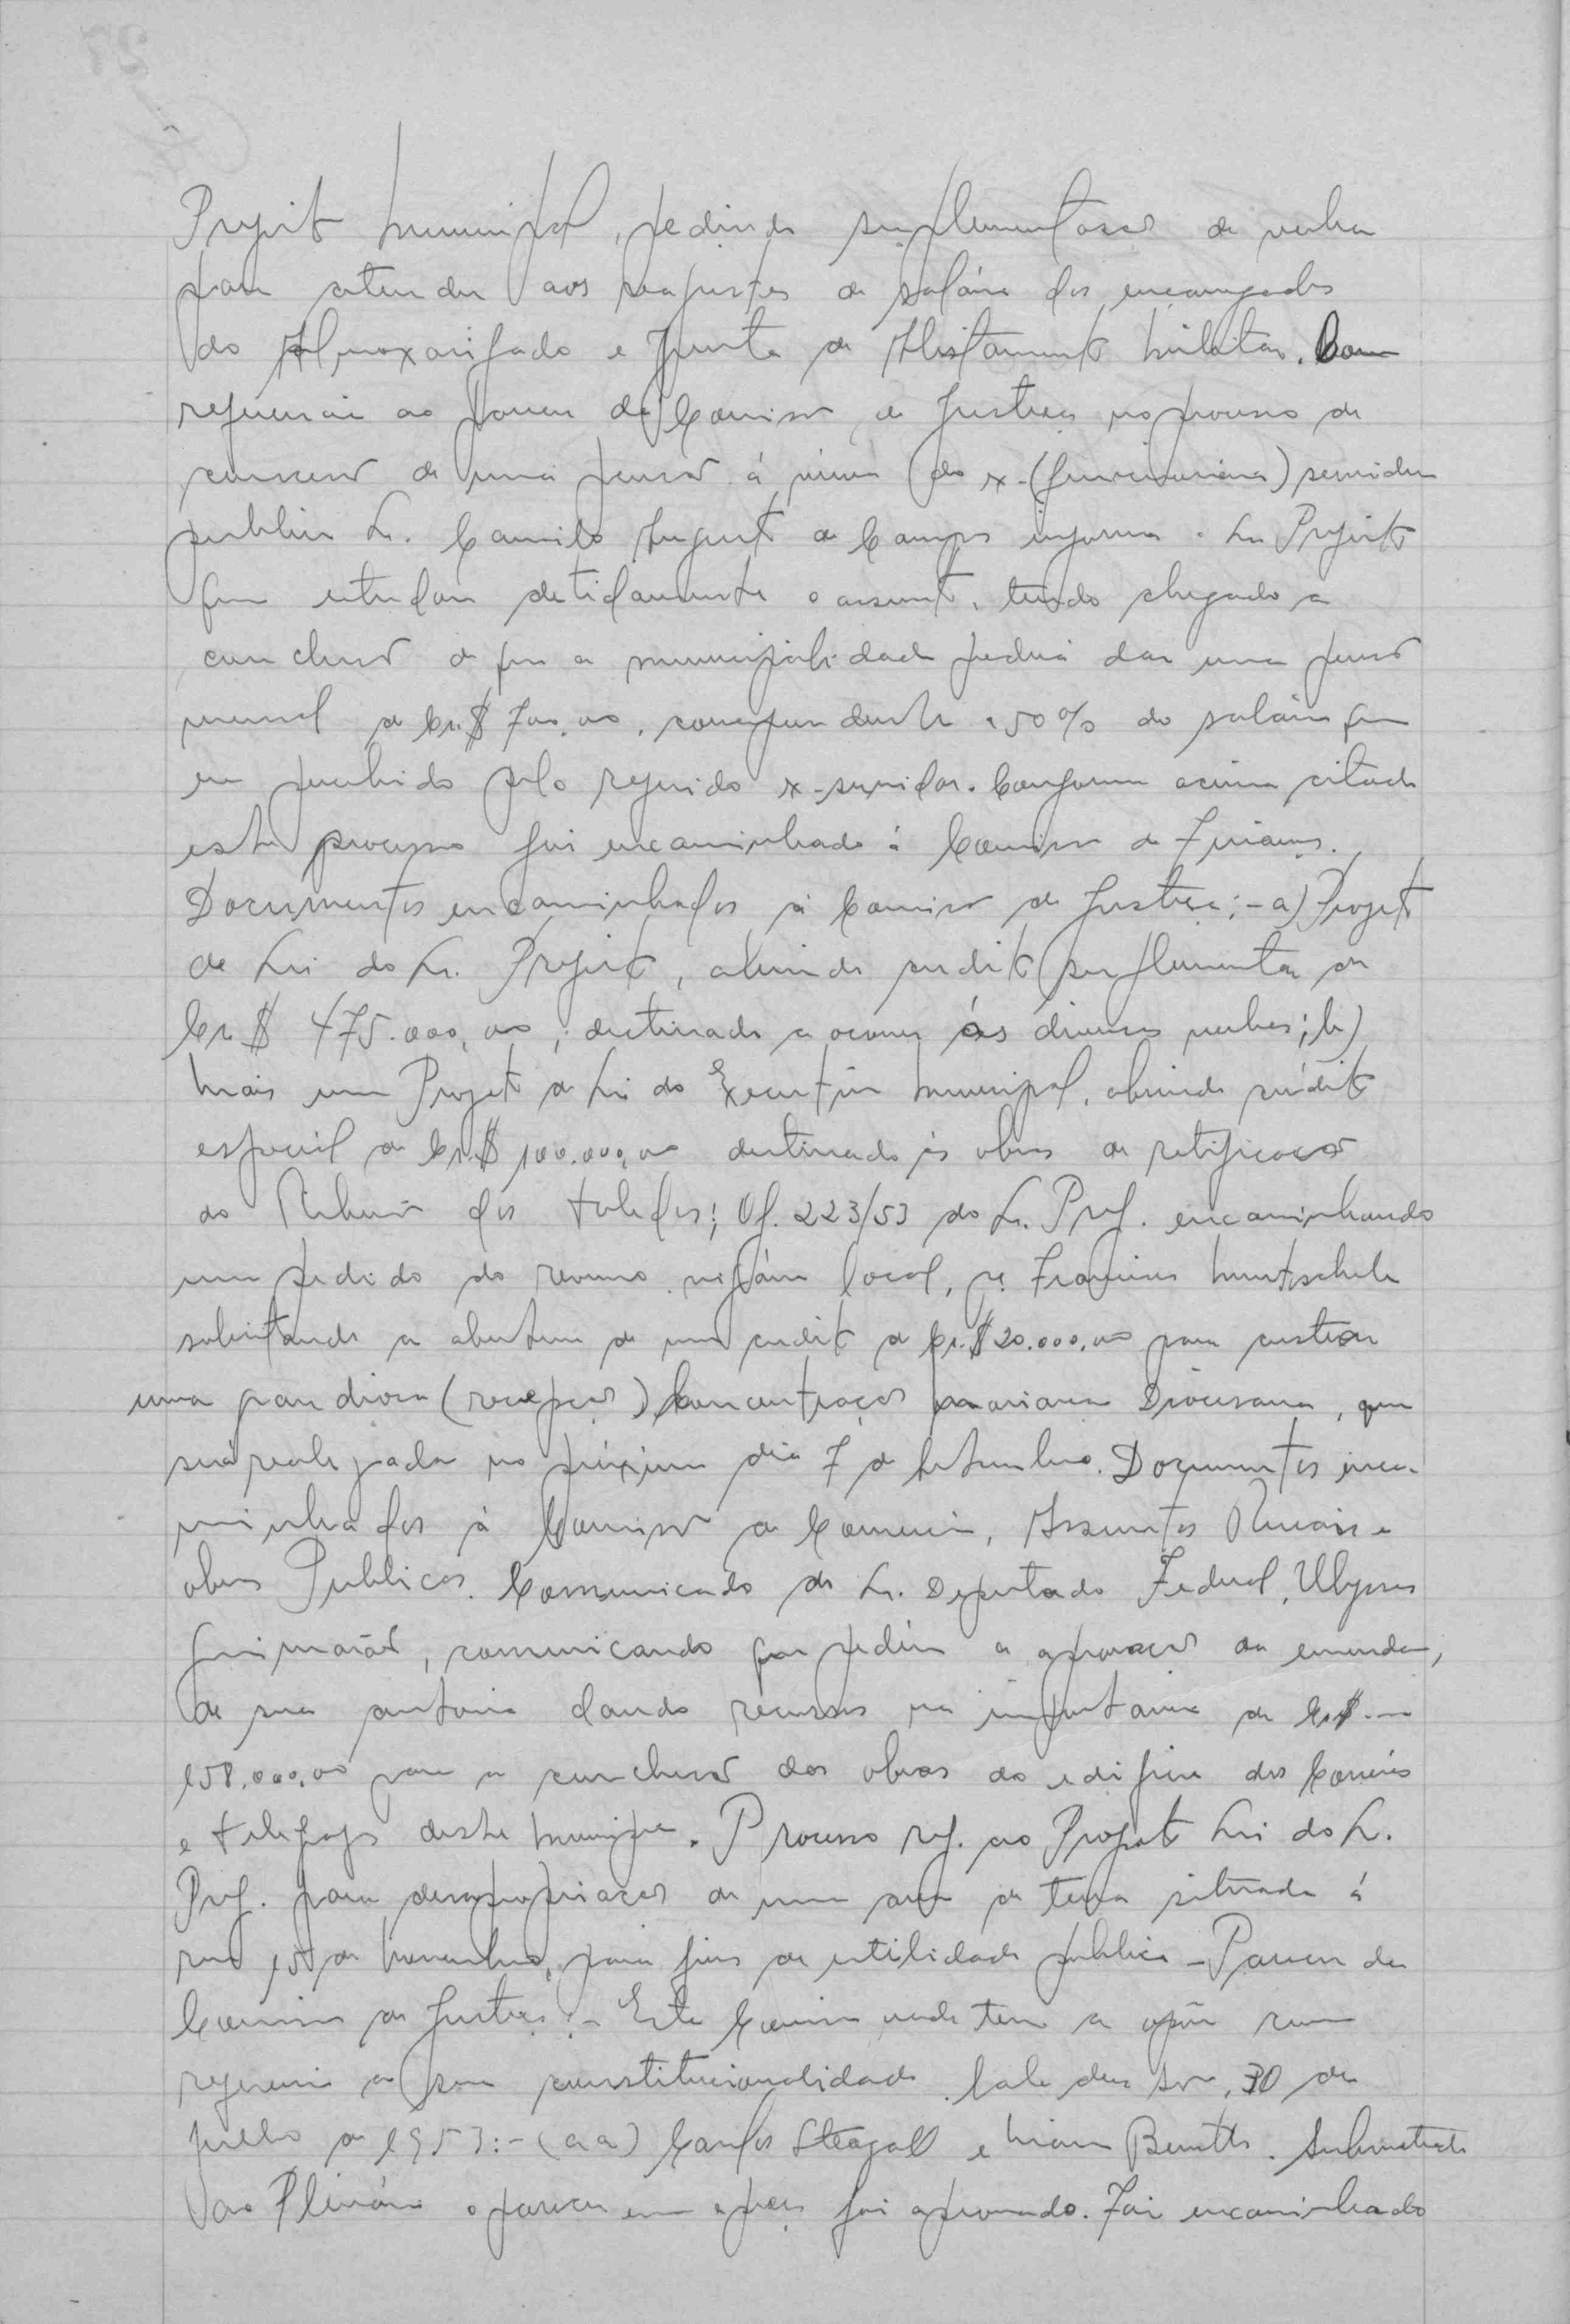 Prefeito Municipal, pedindo suplementação de verba
para atender aos reajustes de salário dos encarregados
do Almoxarifado e Junta de Alistamento Militar. Com
referencia ao parecer da Comissão de Justiça no processo de
concessão de uma pensão á viuva do ex-(funcionario) servidor
publico Sr. Camilo Augusto de Campos informa o Sr. Prefeito
que estudou detidamente o assunto, tendo chegado a
conclusão de que a municipalidade poderá dar uma pensão
mensal de Cr.$ 700,00, correspondente a 50% do salário que
era percebido pelo referido ex-servidor. Conforme acima citado
este processo foi encaminhado á Comissão de Finanças.
Documentos encaminhados á Comissão de Justiça:- a) Projeto
de Lei do Sr. Prefeito, abrindo credito suplementar de
Cr $ 475.000,00, destinado a ocorrer ás diversas verbas; b)
Mais um Projeto de Lei do Executivo Municipal, abrindo crédito
especial de Cr.$ 100.000,00 destinado ás obras de retificação
do Ribeirão dos Toledos; Of. 223/53 do Sr. Pref. encaminhando
um pedido do revmo. vigário local, pe. Francisco
solicitando a abertura de um credito de Cr.$ 20.000,00 para custear
uma grandiosa (recepção) Concentração Mariana Diocesana, que
será realizada no próximo dia 7 de Setembro. Documentos enca-
minhados á Comissão de Comercio, Assuntos Rurais e
obras Publicas. Comunicado do Sr. Deputado Federal, Ulysses
Guimarães, comunicando que pediu a aprovação da emenda,
de sua autoria dando recursos na importancia de Cr$.—
158.000,00 para a conclusão das obras do edificio dos Correios
e Telegrafos deste Municipio. Processo ref. ao Projeto Lei do Sr.
Pref. para desapropriação de uma area de terra situada á
rua 15 de Novembro, para fins de utilidade publica - Parecer da
Comissão de Justiça:- Esta Comissão nada tem a opôr com
referencia a sua constitucionalidade. Sala das Ses., 30 de
julho de 1953:- (aa) Carlos Steagall e
ao Plenário o parecer em apreço foi aprovado. Foi encaminhado